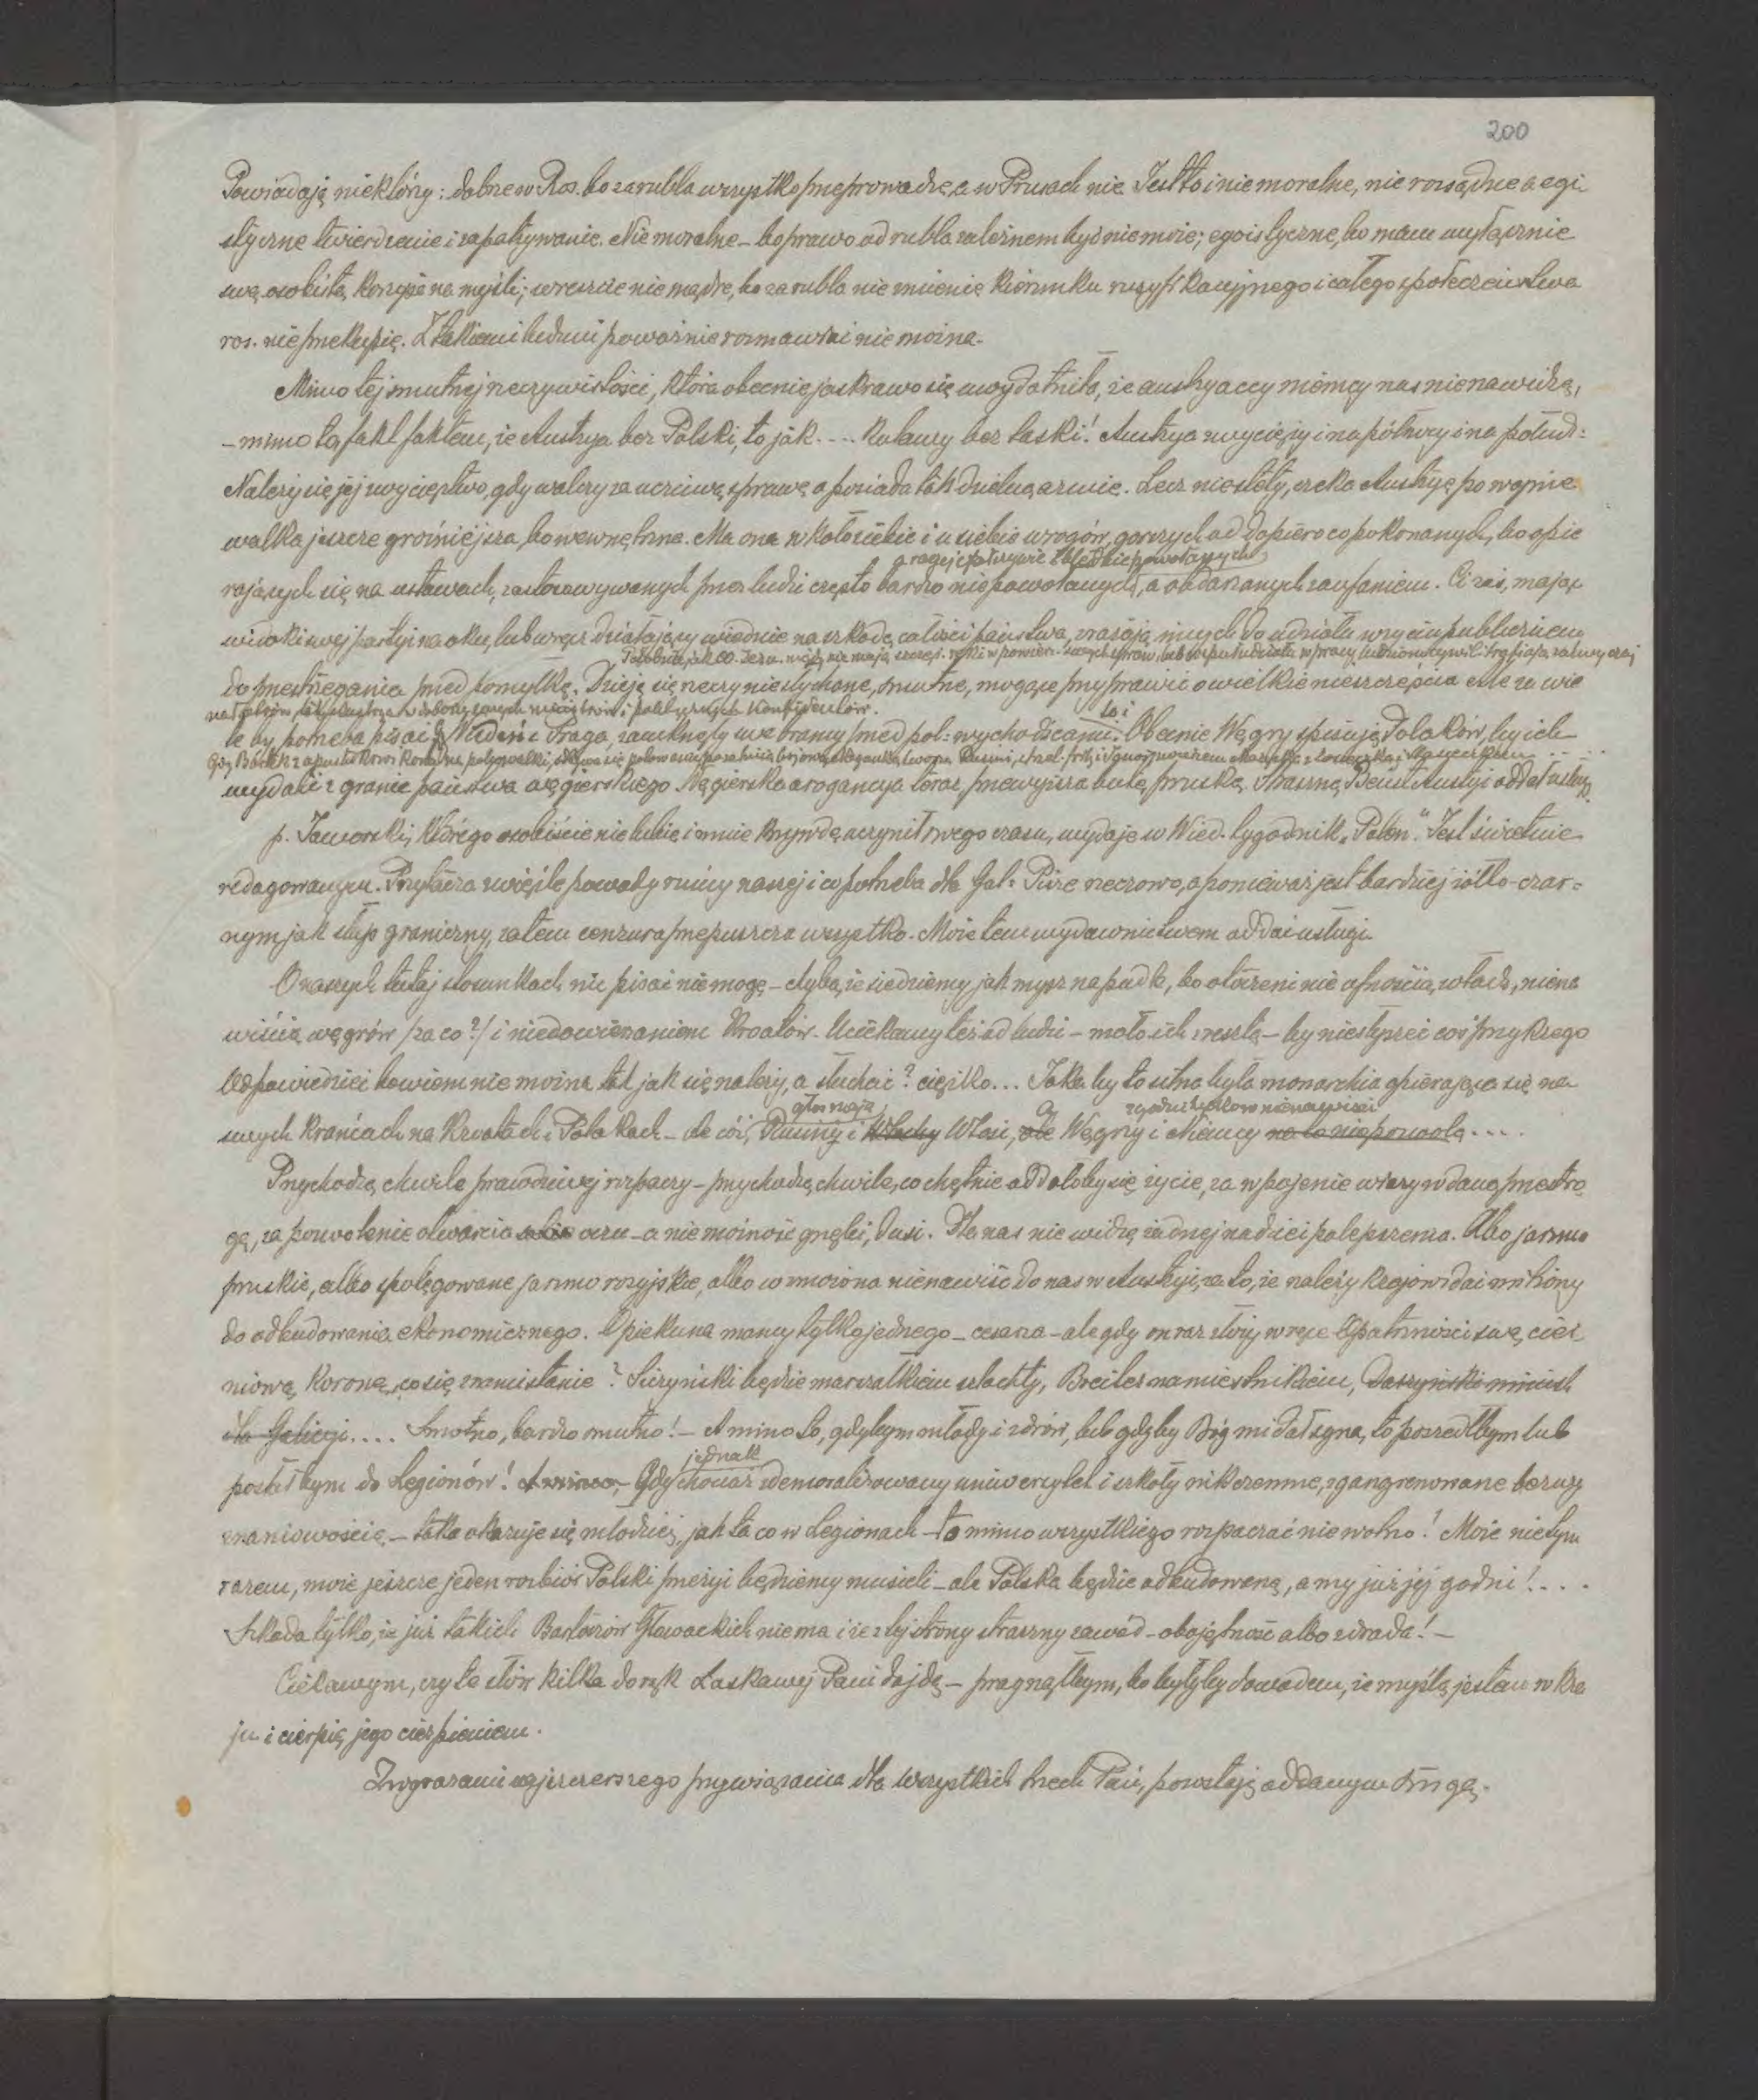 200
Powiadają niektórzy: dobrze w Ros. bo za rubla wszystko przeprowadzę, a w Prusach nie. Jest to i niemoralne, nierozsądne a egi
styczne twierdzenie i zapatrywanie. Niemoralne – bo prawo od rubla zależnem być nie może; egoistyczne, bo mam wyłącznie
swą osobistą korzyść na myśli; wreszcie nie mądre, bo za rubla nie zmienię kierunku rusyfikacyjnego i całego społeczeństwa
ros. nie przekupię. Z takiemi ludźmi poważnie rozmawiać nie można.
Mimo tej smutnej rzeczywistości, która obecnie jaskrawo się uwydatniła, że austryaccy niemcy nas nienawidzą,
– mimo to, fakt faktem, że Austrya bez Polski, to jak .... kulawy bez laski! Austrya zwycięży i na północy i na połud:
Należy się jej zwycięztwo, gdy walczy za uczciwą sprawę a posiada tak dzielną armię. Lecz niestety, czeka Austryę po wojnie
walka jeszcze groźniejsza, bo wewnętrzna. Ma ona w koło siebie i u siebie wrogów, gorszych od dopiero co pokonanych, bo opie
a raczej przez
rających się na ustawach, zastosowywanych przez ludzi często bardzo niepowołanych, a obdarzanych zaufaniem. Ci zaś, mając
widoki swej partyi na oku, lub wręcz działający wiednie na szkodę całości państwa, zrażają innych do udziału w życiu publicznem
Podobnie jak OO. Jezu. nie mają szczęś. ręki w powierz. swych spraw
do przestrzegania przed pomyłką. Dzieją się rzeczy niesłychane, smutne, mogące przyprawić o wielkie nieszczęścia ale za wie
i politycznych konfidentów.
to i
le by potrzeba pisać. Wiedeń i Praga, zamknęły swe bramy przed pol: wychodźcami. Obecnie Węgry spisują Polaków, by ich
wydalić z granic państwa węgierskiego. Węgierska arogancya teraz przewyższa butę pruską. Straszną Beust Austryi oddał usługę.
p. Jaworski, którego osobiście nie lubię i mnie krzywdę uczynił swego czasu, wydaje w Wied. tygodnik „Polen". Jest świetnie
redagowanym. Przytacza zwięźle powody ruiny naszej i co potrzeba dla Gal: Pisze rzeczowo, a ponieważ jest bardziej żółto-czar-
nym jak słup graniczny, zatem cenzura przepuszcza wszystko. Może tem wydawnictwem oddać usługi.
O naszych tutaj stosunkach nic pisać nie mogę – chyba, że siedziemy jak mysz na pudle, bo otoczeni nieufnością władz, niena
wiścią węgrów /za co?/ i niedowierzaniem Kroatów. Uciekamy też od ludzi – mało ich zresztą – by nie słyszeć coś przykrego
Odpowiedzieć bowiem nie można tak jak się należy, a słuchać? ciężko... Jaka by to silna była monarchia opierająca się na
zgodni tylko w nienawiści
swych krańcach na Kroatach i Polakach – ale cóż, Rusiny i Włochy Włosi, ale a Węgry i Niemcy na to nie pozwolą ....
Przychodzą chwile prawdziwej rozpaczy – przychodzą chwile, co chętnie oddałoby się życie, za wpojenie wiary w daną przestro
gę, za pozwolenie otwarcia sobie oczu – a niemożność gnębi, dusi. Dla nas nie widzę żadnej nadziei polepszenia. Albo jarzmo
pruskie, albo spotęgowane jarzmo rosyjskie, albo wzmożona nienawiść do nas w Austryi, za to, że należy krajowi dać miliony
do odbudowania ekonomicznego. Opiekuna mamy tylko jednego – cesarza – ale gdy on raz złoży w ręce Opatrzności swą cier
niową koronę, co się z nami stanie? Siczyński będzie marszałkiem szlachty, Breiter namiestnikiem, Daszyński minist
dla Galicyi.... Smutno, bardzo smutno! – A mimo to, gdybym młody i zdrów, lub gdyby Bóg mi dał syna, to poszedłbym lub
jednak
posłał bym do Legionów! A mimo – Gdy chociaż zdemoralizowany uniwersytet i szkoły nikczemne, zgangrenowane bezwy
znaniowością – taka okazuje się młodzież, jak ta co w Legionach – to mimo wszystkiego rozpaczać nie wolno! Może nie tym
razem, może jeszcze jeden rozbiór Polski przeżyć będziemy musieli – ale Polska będzie odbudowaną, a my już jej godni!....
Szkoda tylko, że już takich Bartoszów Głowackich niema i że z tej strony straszny zawód – obojętność albo zdrada! –
Ciekawym, czy te słów kilka do rąk Łaskawej Pani dojdą – pragnąłbym, bo byłyby dowodem, że myślą jestem w kra
ju i cierpię jego cierpieniem.
Z wyrazami najszczerszego przywiązania dla wszystkich trzech Pań, pozostaję oddanym sługą.